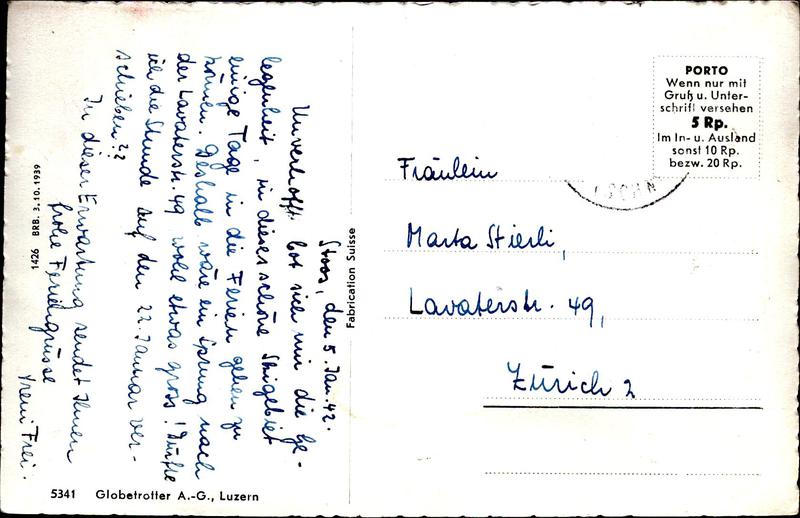 Stoos, den 5. Jan. 42.
Unverhofft bot sich mir die Ge-
legenheit, in dieses schöne Skigebiet
einige Tage in die Ferien gehen zu
können. Deshalb wäre ein Sprung nach
der Lavaterstr. 49 wohl etwas gross! Dürfte
ich die Stunde auf den 22. Januar ver-
schieben??
In dieser Erwartung sendet Ihnen
frohe Feriengrüsse
Vreni Frei.
1426 BRB. 3.10.1939
Fabrication Suisse
5341 Globetrotter A.-G., Luzern
PORTO
Wenn nur mit
Gruß u. Unter-
schrift versehen
5 Rp.
Im In- u. Ausland
sonst 10 Rp.
bezw. 20 Rp.
Fräulein
Marta Stierli,
Lavaterstr. 49,
Zürich 2